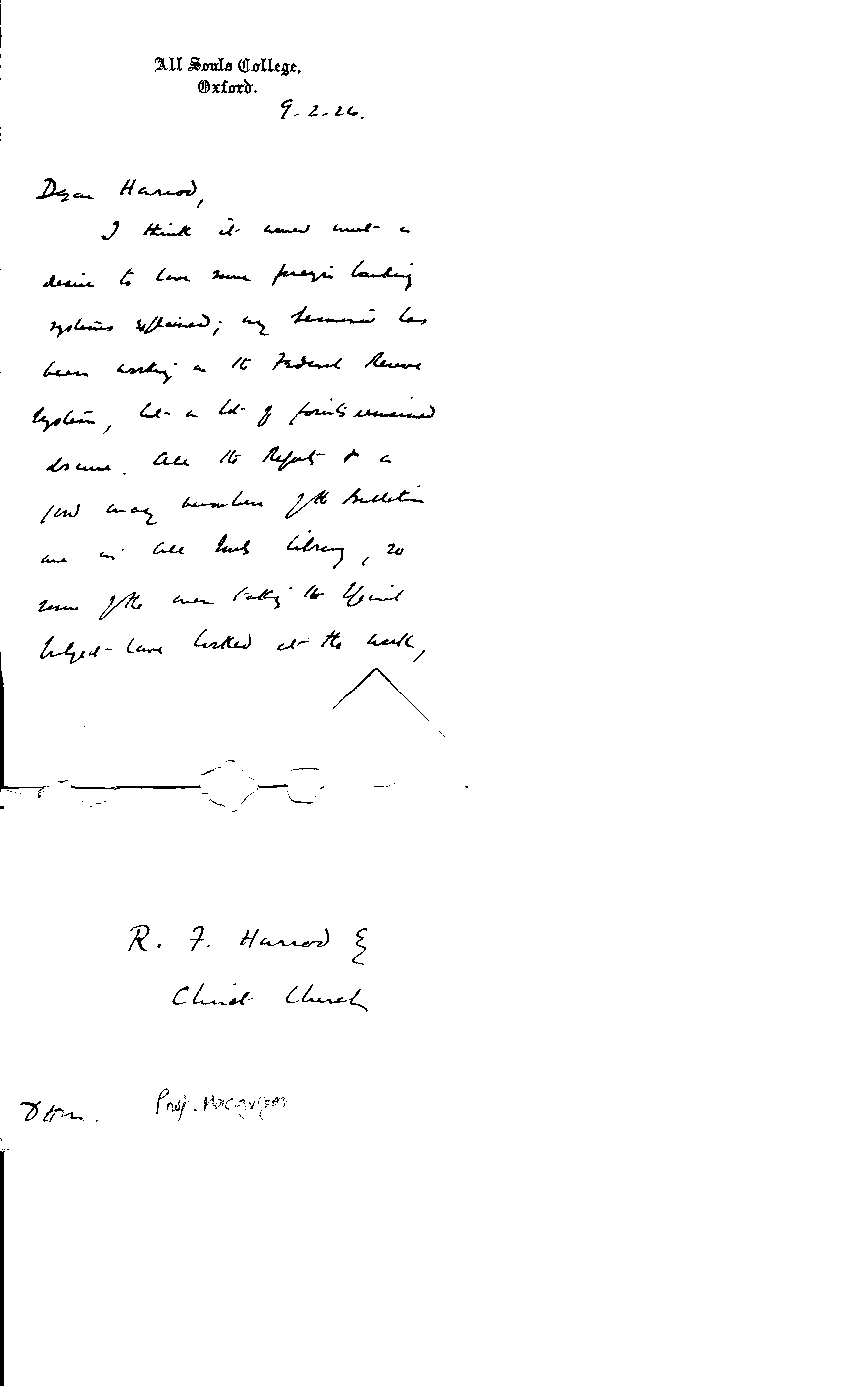 All Souls College,
Oxford.
9.2.26.
Dear Harrod,
I think it would meet a
desire to have some foreign banking
systems explained; my Seminar has
been working on the Federal Reserve
System, but a lot of points remained
obscure. All the Reports & a
good many numbers of the Bulletin
are in All Souls Library, so
some of the men taking the special
subject have looked at the work,
R. F. Harrod
Christ Church
Prof. Macgregor